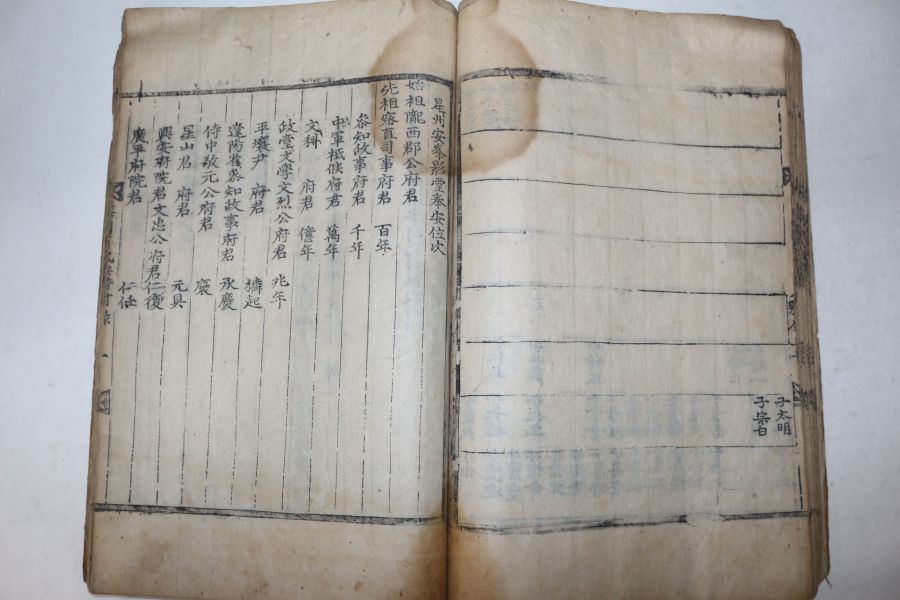 子太明
子宗白
星州安峯影堂奉安位次
始祖隴西郡公府君
先祖密直司事府君 百年
叅知政事府君 千年
中軍祗候府君 萬年
文科 府君 億年
政堂文學文烈公府君 兆年
平壤尹 府君
遼陽省叅知政事府君 承慶
侍中敬元公府君 褒
星山君 府君 元具
興安府院君文忠公府君 仁復
廣平府院君 仁任